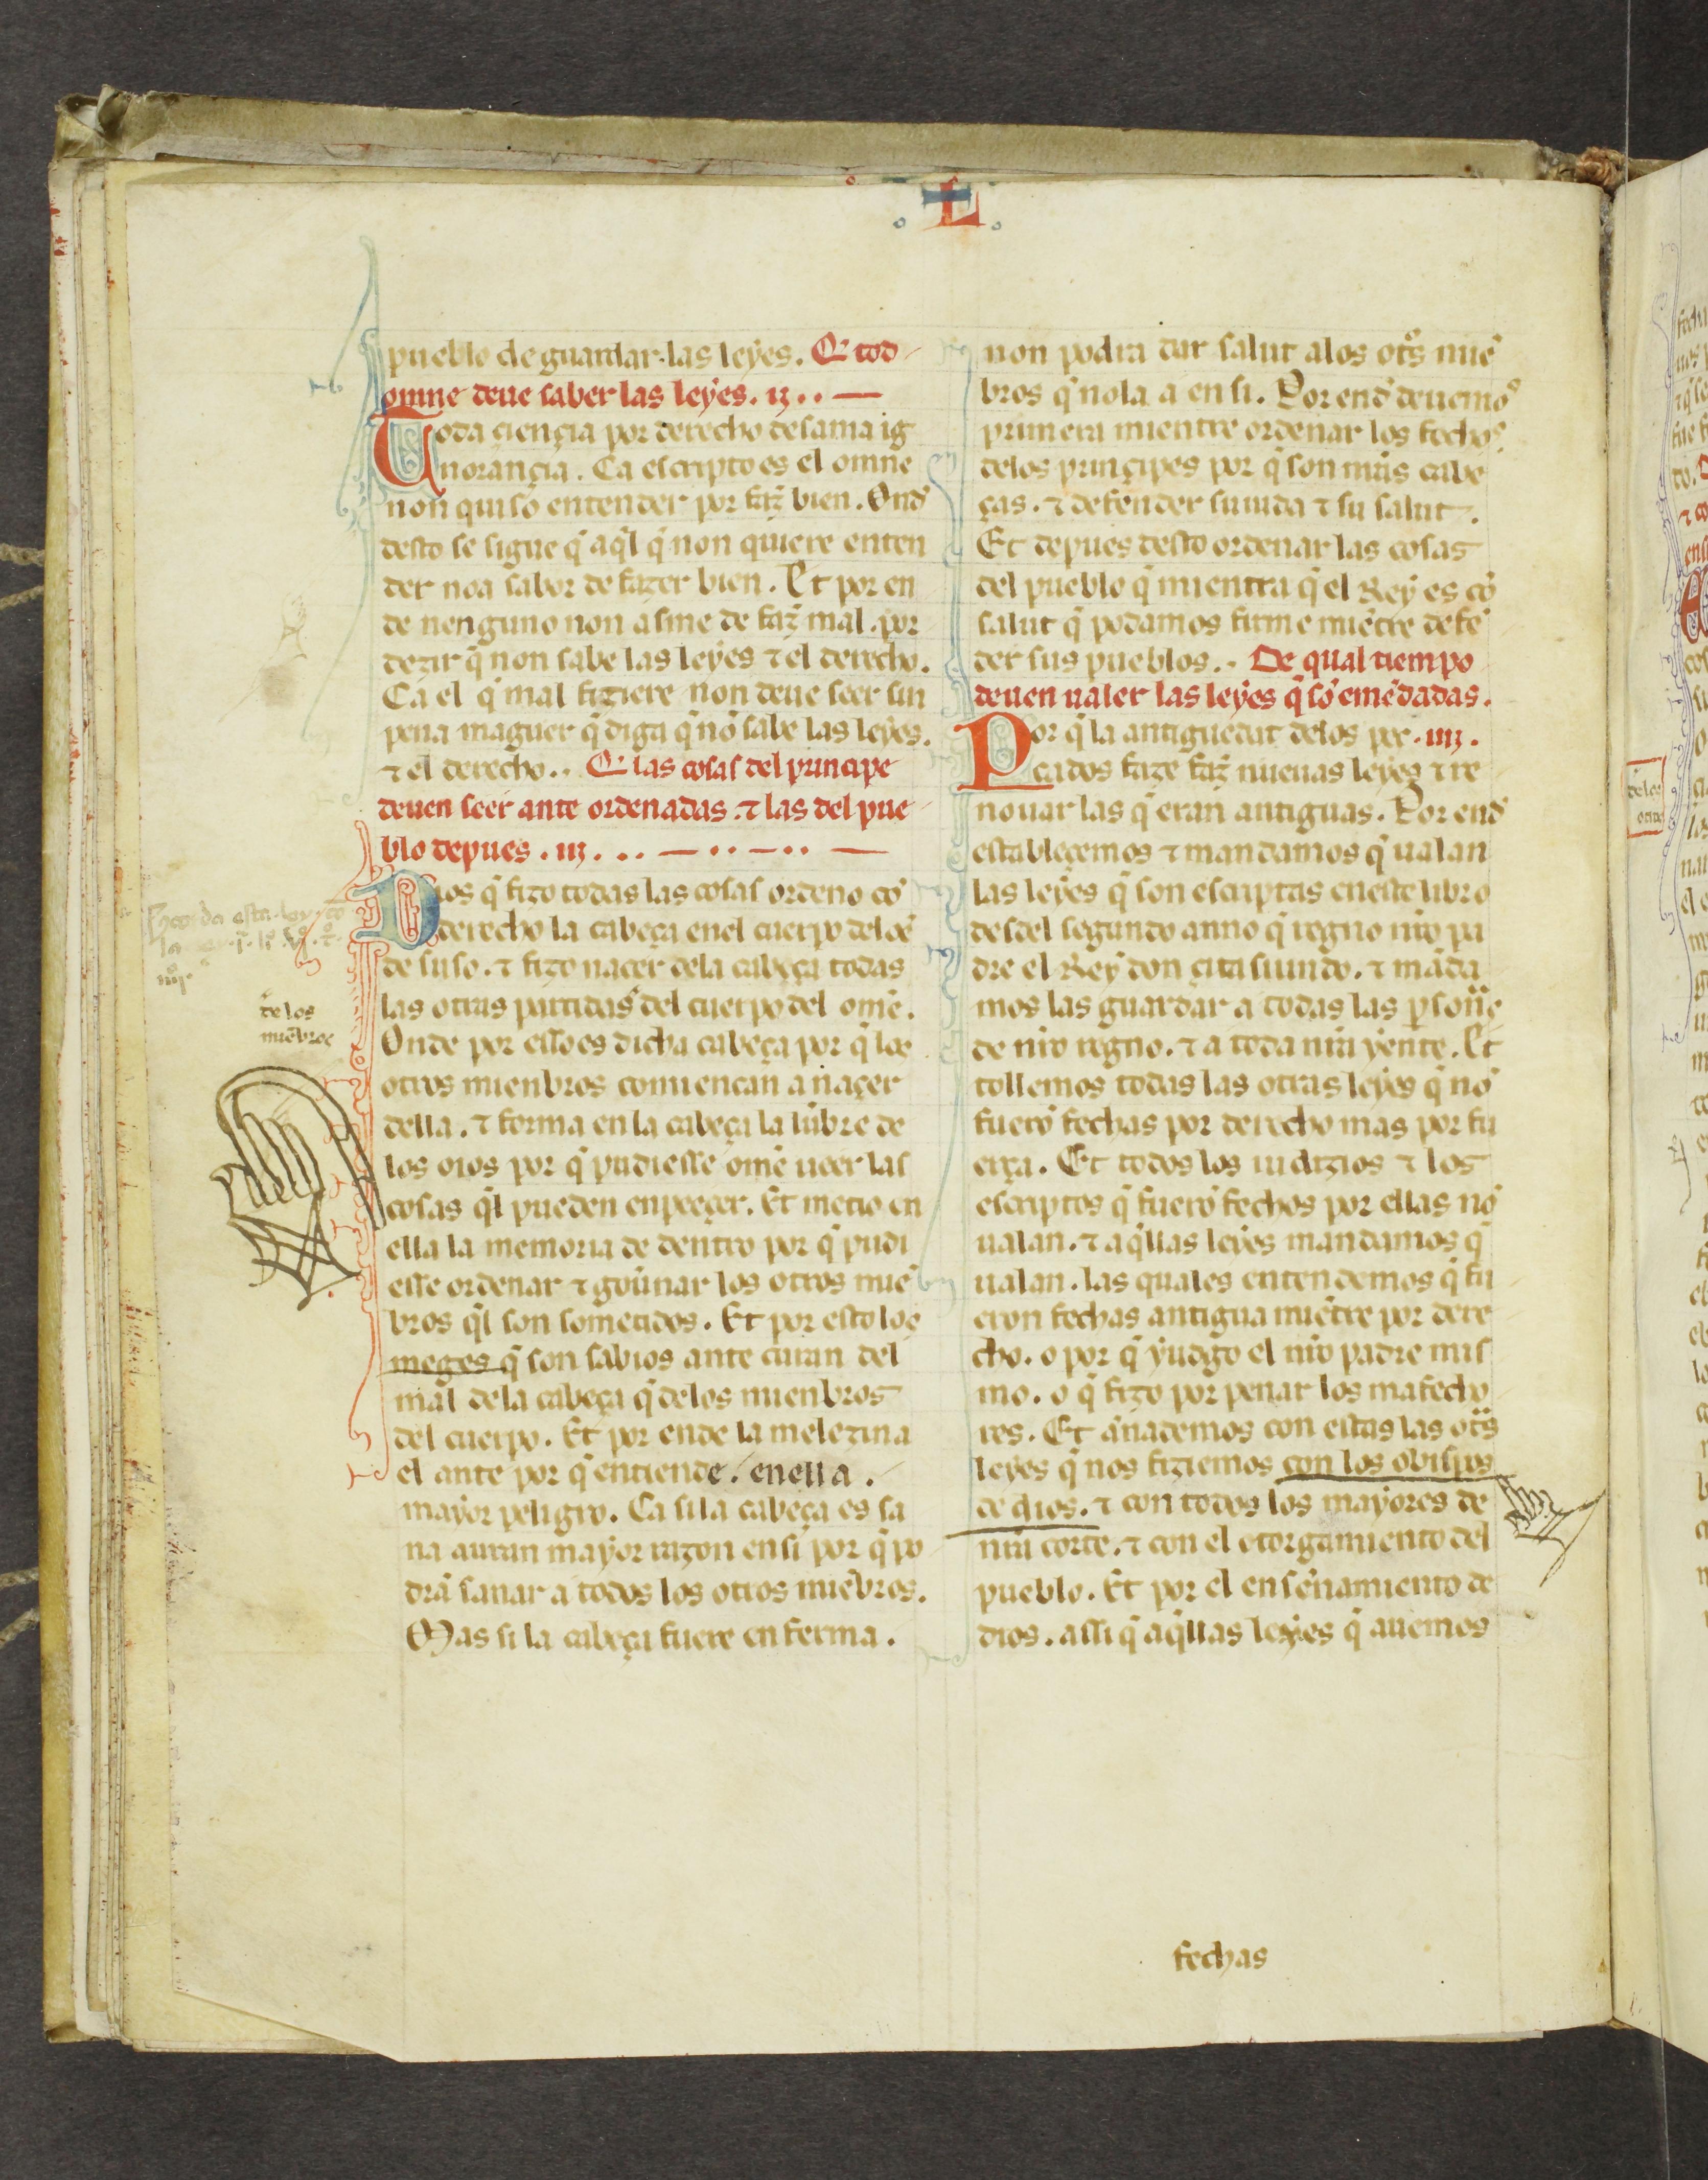 L
pueblo de guardar las leyes. Q̃ tod
omne deue saber las leyes. ij..
Toda çiençia por derecho desama ig
norançia. Ca escripto es el omne
non quiso entender por faz̃ bien. Ond̃
desto se sigue q̃ aq̃l q̃ non quiere enten
der noa sabor de fazer bien. Et por en
de nenguno non asme de faz̃ mal. por
dezir q̃ non sabe las leyes ⁊ el derecho.
Ca el q̃ mal fiziere non deue seer sin
pena maguer q̃ diga q̃ nõ sabe las leyes.
⁊ el derecho.. Q̃ las cosas del principe
deuen seer ante ordenadas. ⁊ las del pue
blo depues. iij...
Dios q̃ fizo todas las cosas ordeno cõ
derecho la cabeça enel cuerpo del oẽ
de suso. ⁊ fizo naçer dela cabeça todas
las otras partidas del cuerpo del omẽ.
Onde por esso es dicha cabeça por q̃ los
otros mienbros comiencan a naçer
della. ⁊ forma en la cabeça la lũbre de
los oios por q̃ pudiesse omẽ ueer las
cosas q̃l pueden enpeeçer. Et metio en
ella la memoria de dentro por q̃ pudi
esse ordenar ⁊ gouñar los otros miẽ
bros q̃l son sometidos. Et por esto los
meges q̃ son sabios ante curan del
mal dela cabeça q̃ delos mienbros
del cuerpo. Et por ende la melezina
el ante por q̃ entiende. enella.
mayor peligro. Ca si la cabeça es sa
na auran mayor razon en si por q̃ po
drã sanar a todos los otros miẽbros.
Mas si la cabeça fuere enferma.
de los
miẽbros
non podra dar salut alos otr̃s miẽ
bros q̃ nola a en si. Por end̃ deuemos
primera mientre ordenar los fechos
delos prinçipes por q̃ son nr̃as cabe
ças. ⁊ defender su uida ⁊ su salut.
Et depues desto ordenar las cosas
del pueblo q̃ mientra q̃ el Rey es cõ
salut q̃ podamos firme miẽtre defẽ
der sus pueblos.. De qual tiempo
deuen ualer las leyes q̃ sõ emẽdadas.
Por q̃ la antiguedat delos pec. iiij.
cados faze faz̃ nueuas leyes ⁊ re
nouar las q̃ eran antiguas. Por end̃
establecemos ⁊ mandamos q̃ ualan
las leyes q̃ son escriptas eneste libro
desdel segundo anno q̃ regno nr̃o pa
dre el Rey don çitasiundo. ⁊ mãda
mos las guardar a todas las p̃sonas
de nr̃o regno. ⁊ a toda nr̃a yente. Et
tollemos todas las otras leyes q̃ nõ
fuerõ fechas por derecho mas por fu
erça. Et todos los iudizios ⁊ los
escriptos q̃ fuerõ fechos por ellas nõ
ualan. ⁊ aq̃llas leyes mandamos q̃
ualan. las quales entendemos q̃ fu
eron fechas antigua miẽtre por dere
cho. o por q̃ yudgo el nr̃o padre mis
mo. o q̃ fizo por penar los mafecho
res. Et anademos con estas las otr̃s
leyes q̃ nos fiziemos con los obispos
de dios. ⁊ con todos los mayores de
nr̃a corte. ⁊ con el otorgamiento del
pueblo. Et por el ensenamiento de
dios. assi q̃ aq̃llas leyes q̃ auemos
fechas